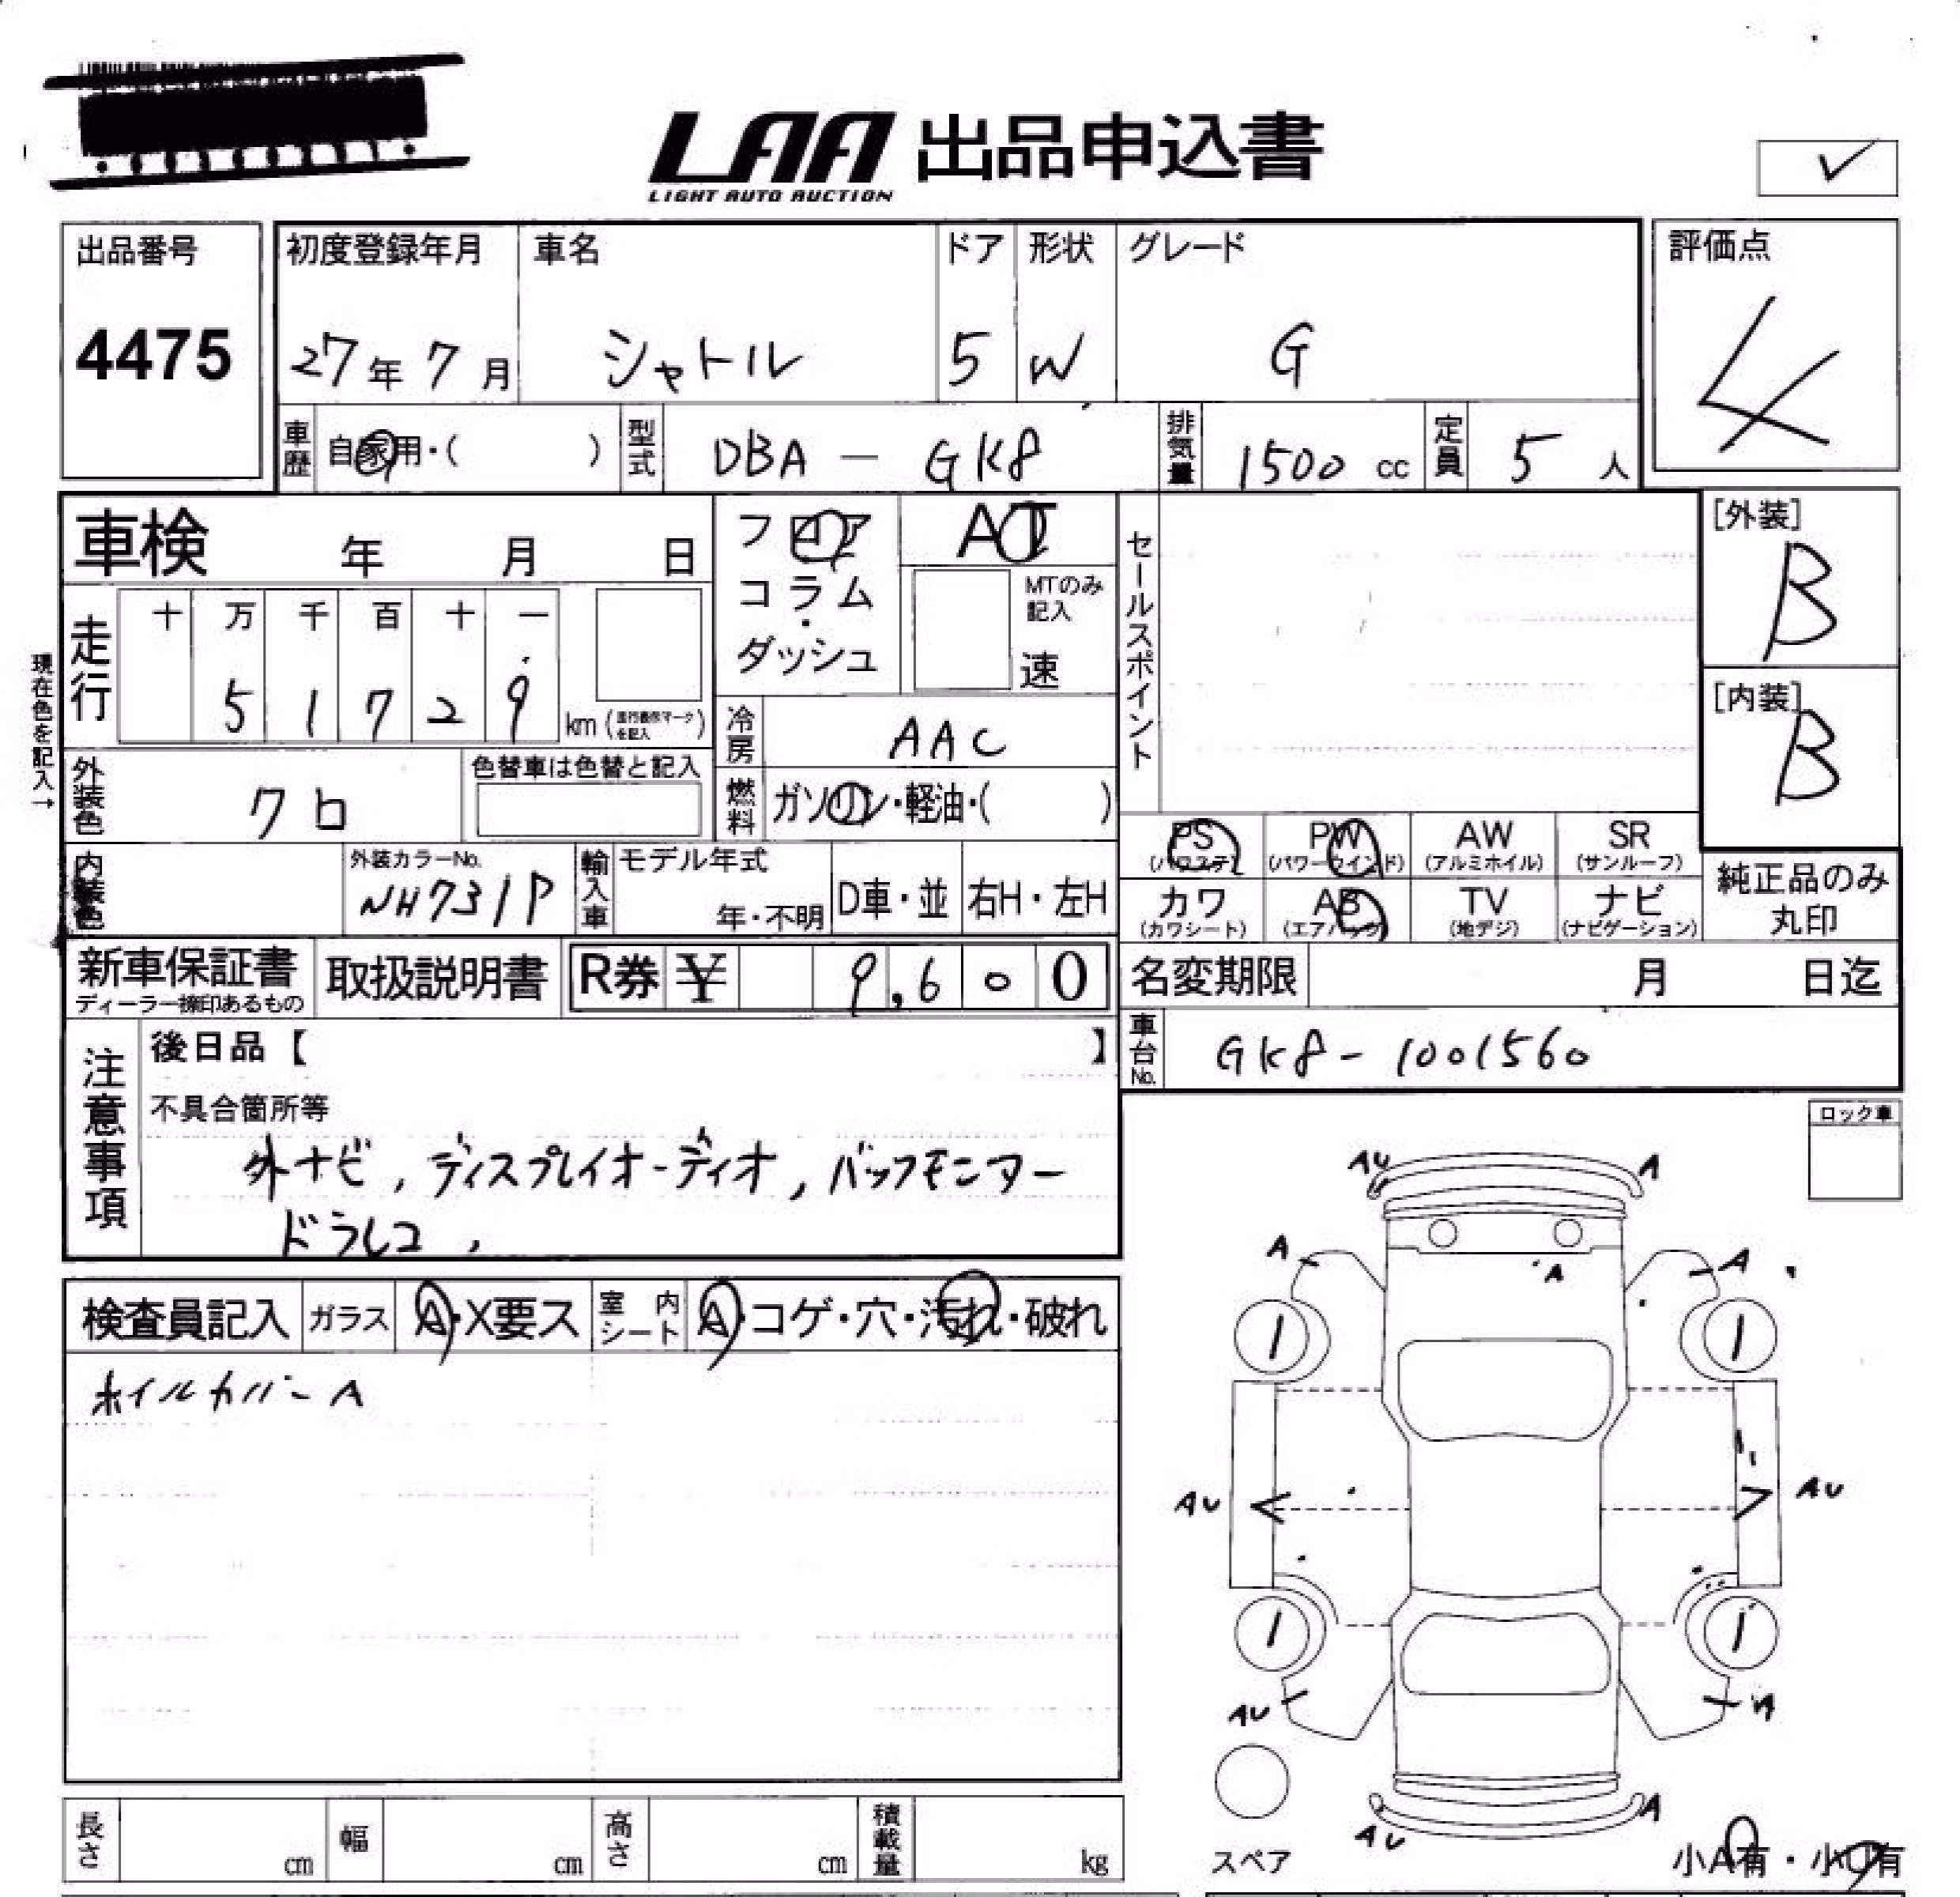 LAA 出品申込書
LIGHT AUTO AUCTION
出品番号
4475
初度登録年月
27年7月
車名
シャトル
ドア
5
形状
W
グレード
G
評価点
4
車歴 自家用・( )
型式 DBA - GK8
排気量 1500 cc
定員 5 人
車検 年 月 日
走行
十 万 千 百 十 一
5 1 7 2 9
km (走行表示マーク を記入)
現在色を記入→
外装色 クロ
色替車は色替と記入
内装色
外装カラーNo.
NH731P
フロア
コラム
・
ダッシュ
AT
MTのみ
記入
速
冷房 AAC
燃料 ガソリン・軽油・( )
輸入車
モデル年式
年・不明
D車・並
右H・左H
セールスポイント
[外装]
B
[内装]
B
PS
(パワステ)
PW
(パワーウインド)
AW
(アルミホイル)
SR
(サンルーフ)
カワ
(カワシート)
AB
(エアバック)
TV
(地デジ)
ナビ
(ナビゲーション)
純正品のみ
丸印
新車保証書
ディーラー捺印あるもの
取扱説明書
R券 ¥ 9,600
名変期限 月 日迄
車台No. GK8-1001560
注意事項
後日品【 】
不具合箇所等
外ナビ, ディスプレイオーディオ, バックモニター
ドラレコ,
ロック車
検査員記入
ガラス A・X要ス
室内シート A・コゲ・穴・汚れ・破れ
ホイルカバーA
AU A
A A
A
1 1
AU AU
1 1
AU A
AU A
スペア
小A有・小U有
長さ cm
幅 cm
高さ cm
積載量 kg